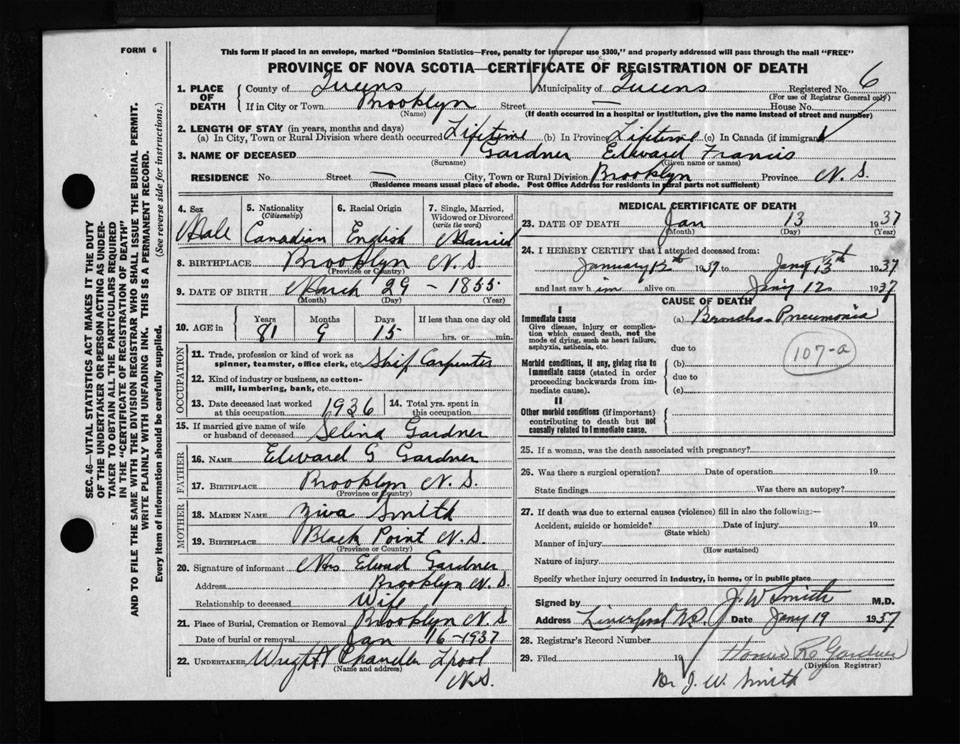 FORM 6
This form if placed in an envelope, marked "Dominion Statistics—Free, penalty for improper use $300," and properly addressed will pass through the mail "FREE"
PROVINCE OF NOVA SCOTIA—CERTIFICATE OF REGISTRATION OF DEATH
1. PLACE OF DEATH County of Queens Municipality of Queens Registered No. 6
(For use of Registrar General only)
If in City or Town Brooklyn Street — House No.
(Name) (If death occurred in a hospital or institution, give the name instead of street and number)
2. LENGTH OF STAY (in years, months and days)
(a) In City, Town or Rural Division where death occurred Lifetime (b) In Province Lifetime (c) In Canada (if immigrant)
3. NAME OF DECEASED Gardner Edward Francis
(Surname) (Given name or names)
RESIDENCE No. Street — City, Town or Rural Division Brooklyn Province N.S.
(Residence means usual place of abode. Post Office Address for residents in rural parts not sufficient)
4. Sex Male
5. Nationality (Citizenship) Canadian
6. Racial Origin English
7. Single, Married, Widowed or Divorced (write the word) Married
8. BIRTHPLACE Brooklyn N.S.
(Province or Country)
9. DATE OF BIRTH March 29 - 1855.
(Month) (Day) (Year)
10. AGE in Years Months Days If less than one day old
81 9 15 hrs. or min.
OCCUPATION
11. Trade, profession or kind of work as spinner, teamster, office clerk, etc. Ship Carpenter
12. Kind of industry or business, as cotton-mill, lumbering, bank, etc.
13. Date deceased last worked at this occupation 1936 14. Total yrs. spent in this occupation
15. If married give name of wife or husband of deceased Selina Gardner
FATHER
16. NAME Edward G Gardner
17. BIRTHPLACE Brooklyn N.S.
(Province or Country)
MOTHER
18. MAIDEN NAME Ziva Smith
19. BIRTHPLACE Black Point N.S.
(Province or Country)
20. Signature of informant Mrs Edward Gardner
Address Brooklyn N.S.
Relationship to deceased Wife
21. Place of Burial, Cremation or Removal Brooklyn N.S
Date of burial or removal Jan 16-1937
22. UNDERTAKER Wright Chandler Lpool
(Name and address)
N.S.
MEDICAL CERTIFICATE OF DEATH
23. DATE OF DEATH Jan 13 1937
(Month) (Day) (Year)
24. I HEREBY CERTIFY that I attended deceased from:
January 12th 1937 to Jany 13th 1937
and last saw him alive on Jany 12 1937
CAUSE OF DEATH
I
Immediate cause (a) Broncho-Pneumonia
Give disease, injury or complication which caused death, not the mode of dying, such as heart failure, asphyxia, asthenia, etc.
due to
107-a
Morbid conditions, if any, giving rise to immediate cause (stated in order proceeding backwards from immediate cause).
(b)
due to
(c)
II
Other morbid conditions (if important) contributing to death but not causally related to immediate cause.
25. If a woman, was the death associated with pregnancy?
26. Was there a surgical operation? Date of operation 19
State findings Was there an autopsy?
27. If death was due to external causes (violence) fill in also the following:—
Accident, suicide or homicide? Date of injury 19
(State which)
Manner of injury
(How sustained)
Nature of injury
Specify whether injury occurred in industry, in home, or in public place
Signed by J. W Smith M.D.
Address Liverpool N.S. Date Jany 19 1937
28. Registrar's Record Number
29. Filed 19 Homer R. Gardner
(Division Registrar)
Dr J. W. Smith
SEC. 46—VITAL STATISTICS ACT MAKES IT THE DUTY
OF THE UNDERTAKER OR PERSON ACTING AS UNDER-
TAKER TO OBTAIN ALL THE PARTICULARS REQUIRED
IN THE "CERTIFICATE OF REGISTRATION OF DEATH"
AND TO FILE THE SAME WITH THE DIVISION REGISTRAR WHO SHALL ISSUE THE BURIAL PERMIT.
WRITE PLAINLY WITH UNFADING INK. THIS IS A PERMANENT RECORD.
Every item of information should be carefully supplied. (See reverse side for instructions.)